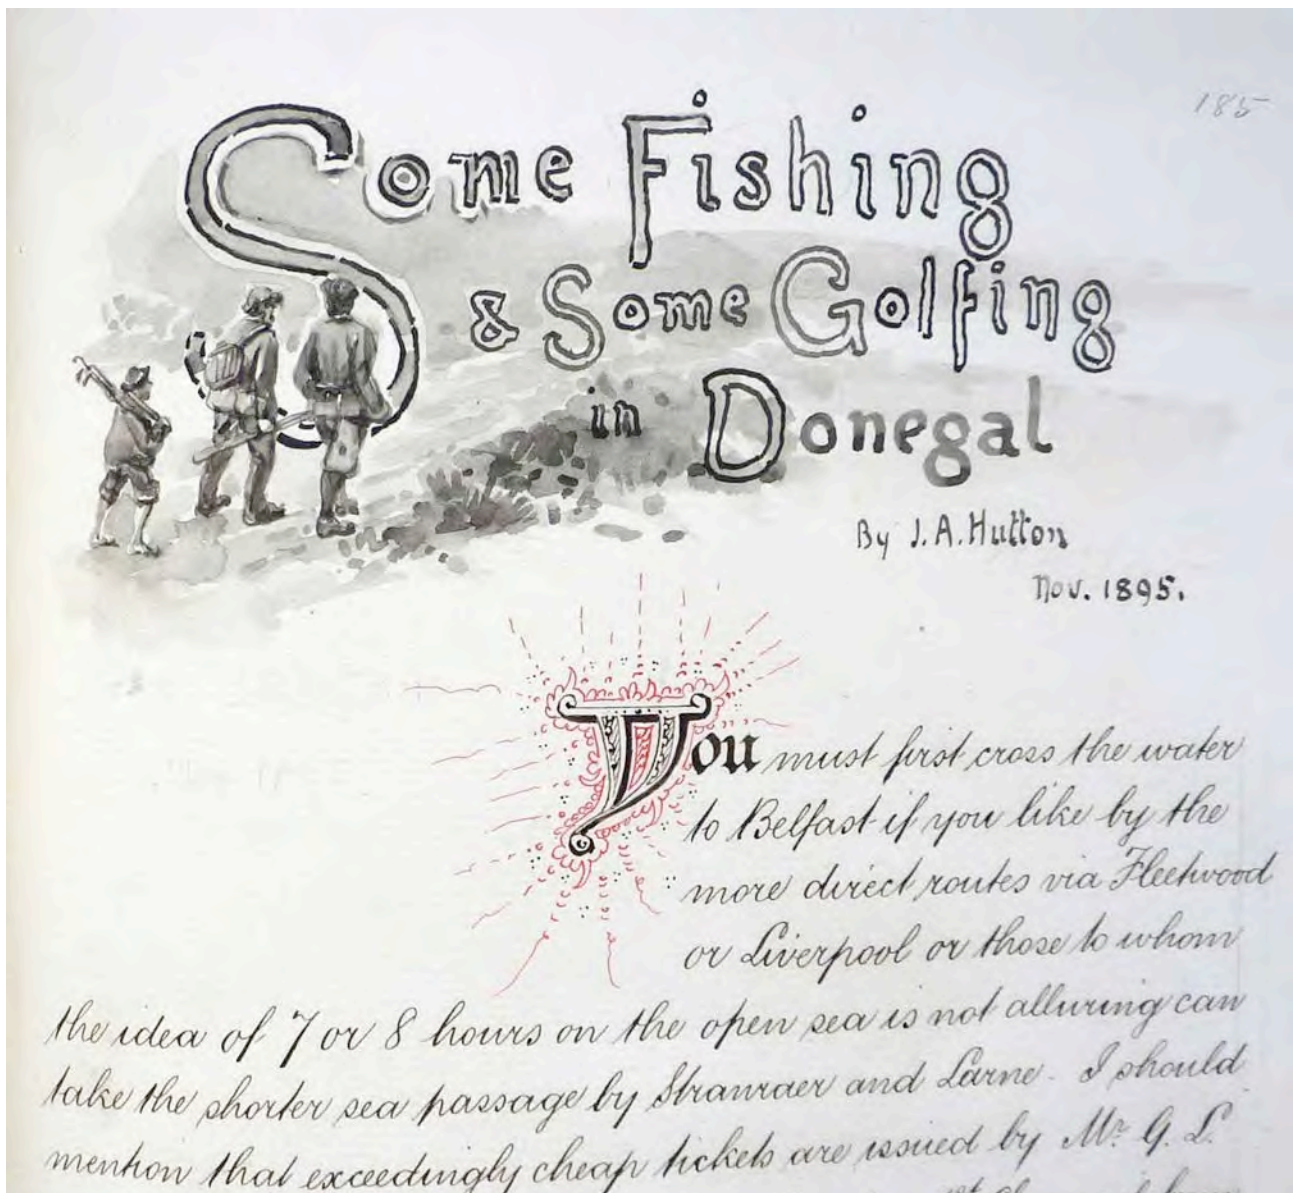 185
Some Fishing
& Some Golfing
in Donegal
By J. A. Hutton
Nov. 1895.
You must first cross the water
to Belfast if you like by the
more direct routes via Fleetwood
or Liverpool or those to whom
the idea of 7 or 8 hours on the open sea is not alluring can
take the shorter sea passage by Stranraer and Larne. I should
mention that exceedingly cheap tickets are issued by Mr. G. L.